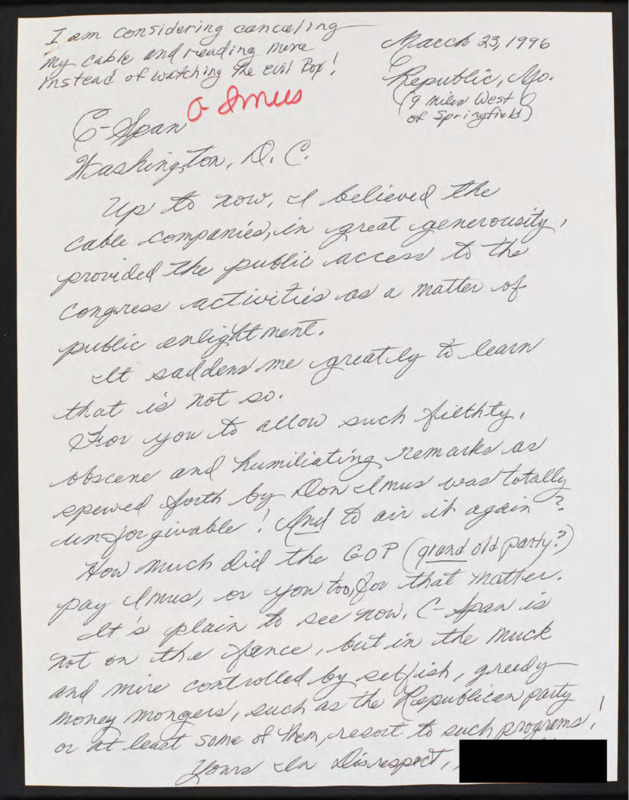 I am considering canceling
my cable and reading more
instead of watching the evil Box!
March 23, 1996
Republic, Mo.
(9 miles West
of Springfield)
Imus
C-Span
Washington, D. C.
Up to now, I believed the
cable companies, in great generousity,
provided the public access to the
congress activities as a matter of
public enlightment.
It saddens me greatly to learn
that is not so.
For you to allow such filthty,
obscene and humiliating remarks as
spewed forth by Don Imus was totally
unforgivable! And to air it again?
How much did the GOP (grand old party?)
pay Imus, or you too, for that matter.
It's plain to see now, C-Span is
not on the fence, but in the muck
and mire controlled by selfish, greedy
money mongers, such as the Republican party
or at least some of them, resort to such programs!
Yours In Disrespect,